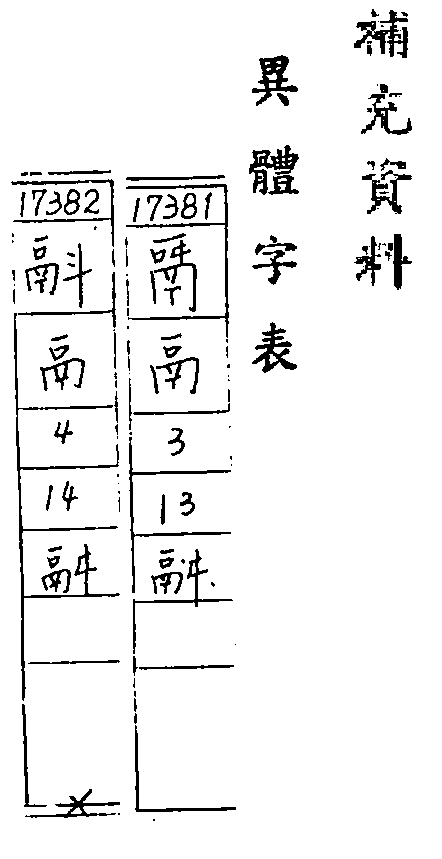 補充資料
異體字表
17381
鬲
3
13
17382
鬲
4
14